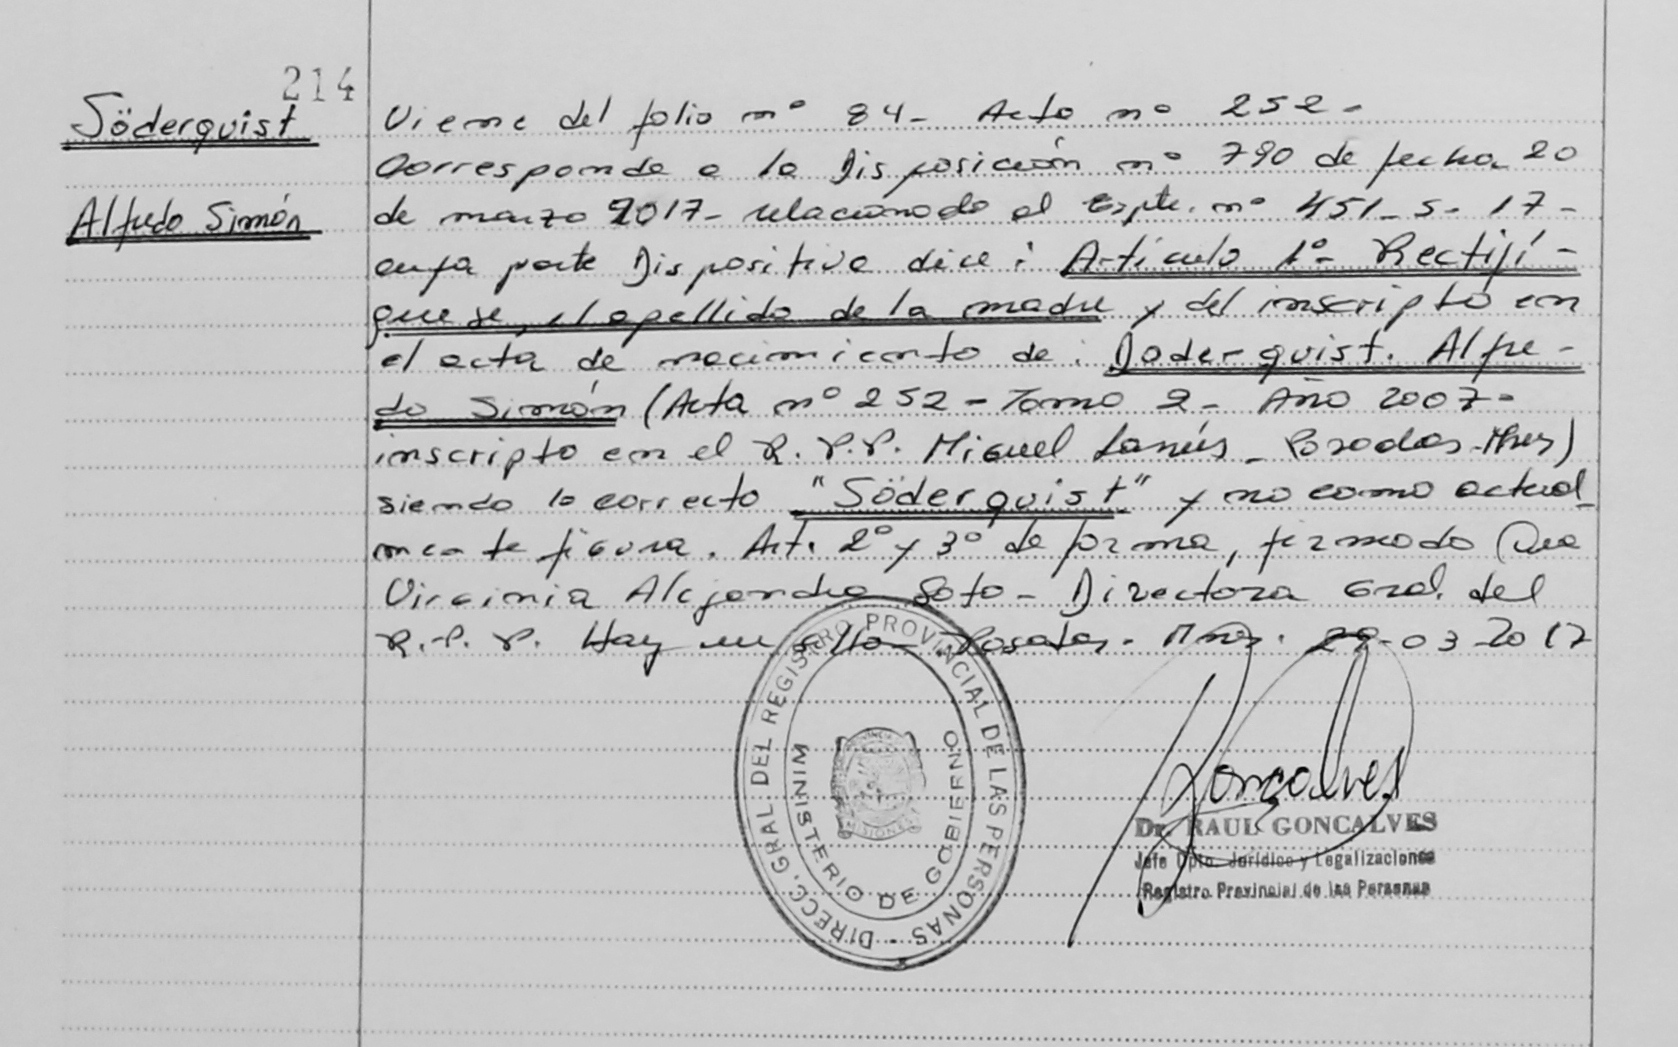 214
Söderquist
Alfredo Simón
Viene del folio nº 84- Acta nº 252-
Corresponde a la Disposición nº 790 de fecha 20
de marzo 2017- relacionado al Expte. nº 451-S-17-
cuya parte Dispositiva dice: Artículo 1º- Rectifí-
quese, el apellido de la madre y del inscripto en
el acta de nacimiento de: Doderquist. Alfre-
do Simón (Acta nº 252 - Tomo 2- Año 2007-
inscripto en el R.P.P. Miguel Lanús - Posadas-Mnes)
siendo lo correcto "Söderquist" y no como actual-
mente figura. Art. 2º y 3º de forma, firmado Dra
Virginia Alejandra Soto- Directora Gral. del
R.P.P. Hay un sello- Posadas- Mnes. 29-03-2017
DIRECC. GRAL. DEL REGISTRO PROVINCIAL DE LAS PERSONAS -
MINISTERIO DE GOBIERNO
PROVINCIA
MISIONES
Gonçalves
Dr. RAUL GONCALVES
Jefe Dpto. Jurídico y Legalizaciones
Registro Provincial de las Personas